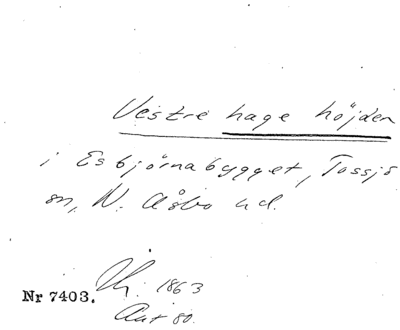 Vestre hage höjden
i Esbjörnabygget, Tossjö
sn, N. Åsbo hd.
1863
Nr 7403.
Aut 80.